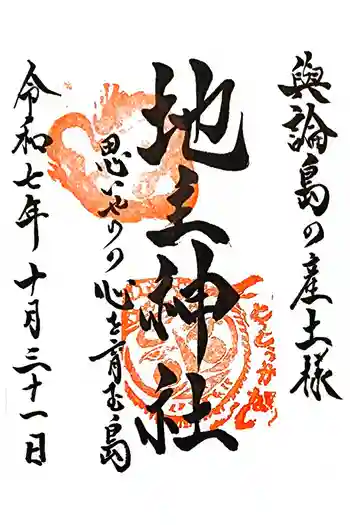 與論島の産土様
地主神社
思いやりの
心を育む島
令和七年十月三十一日